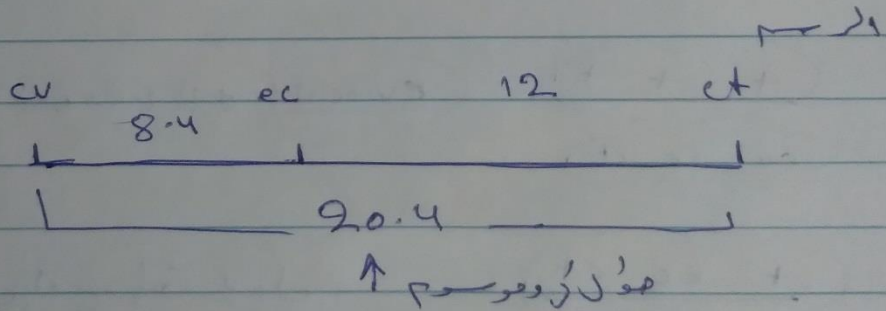 cv ec 12 ct
8.4
20.4
↑ طول كروموسوم